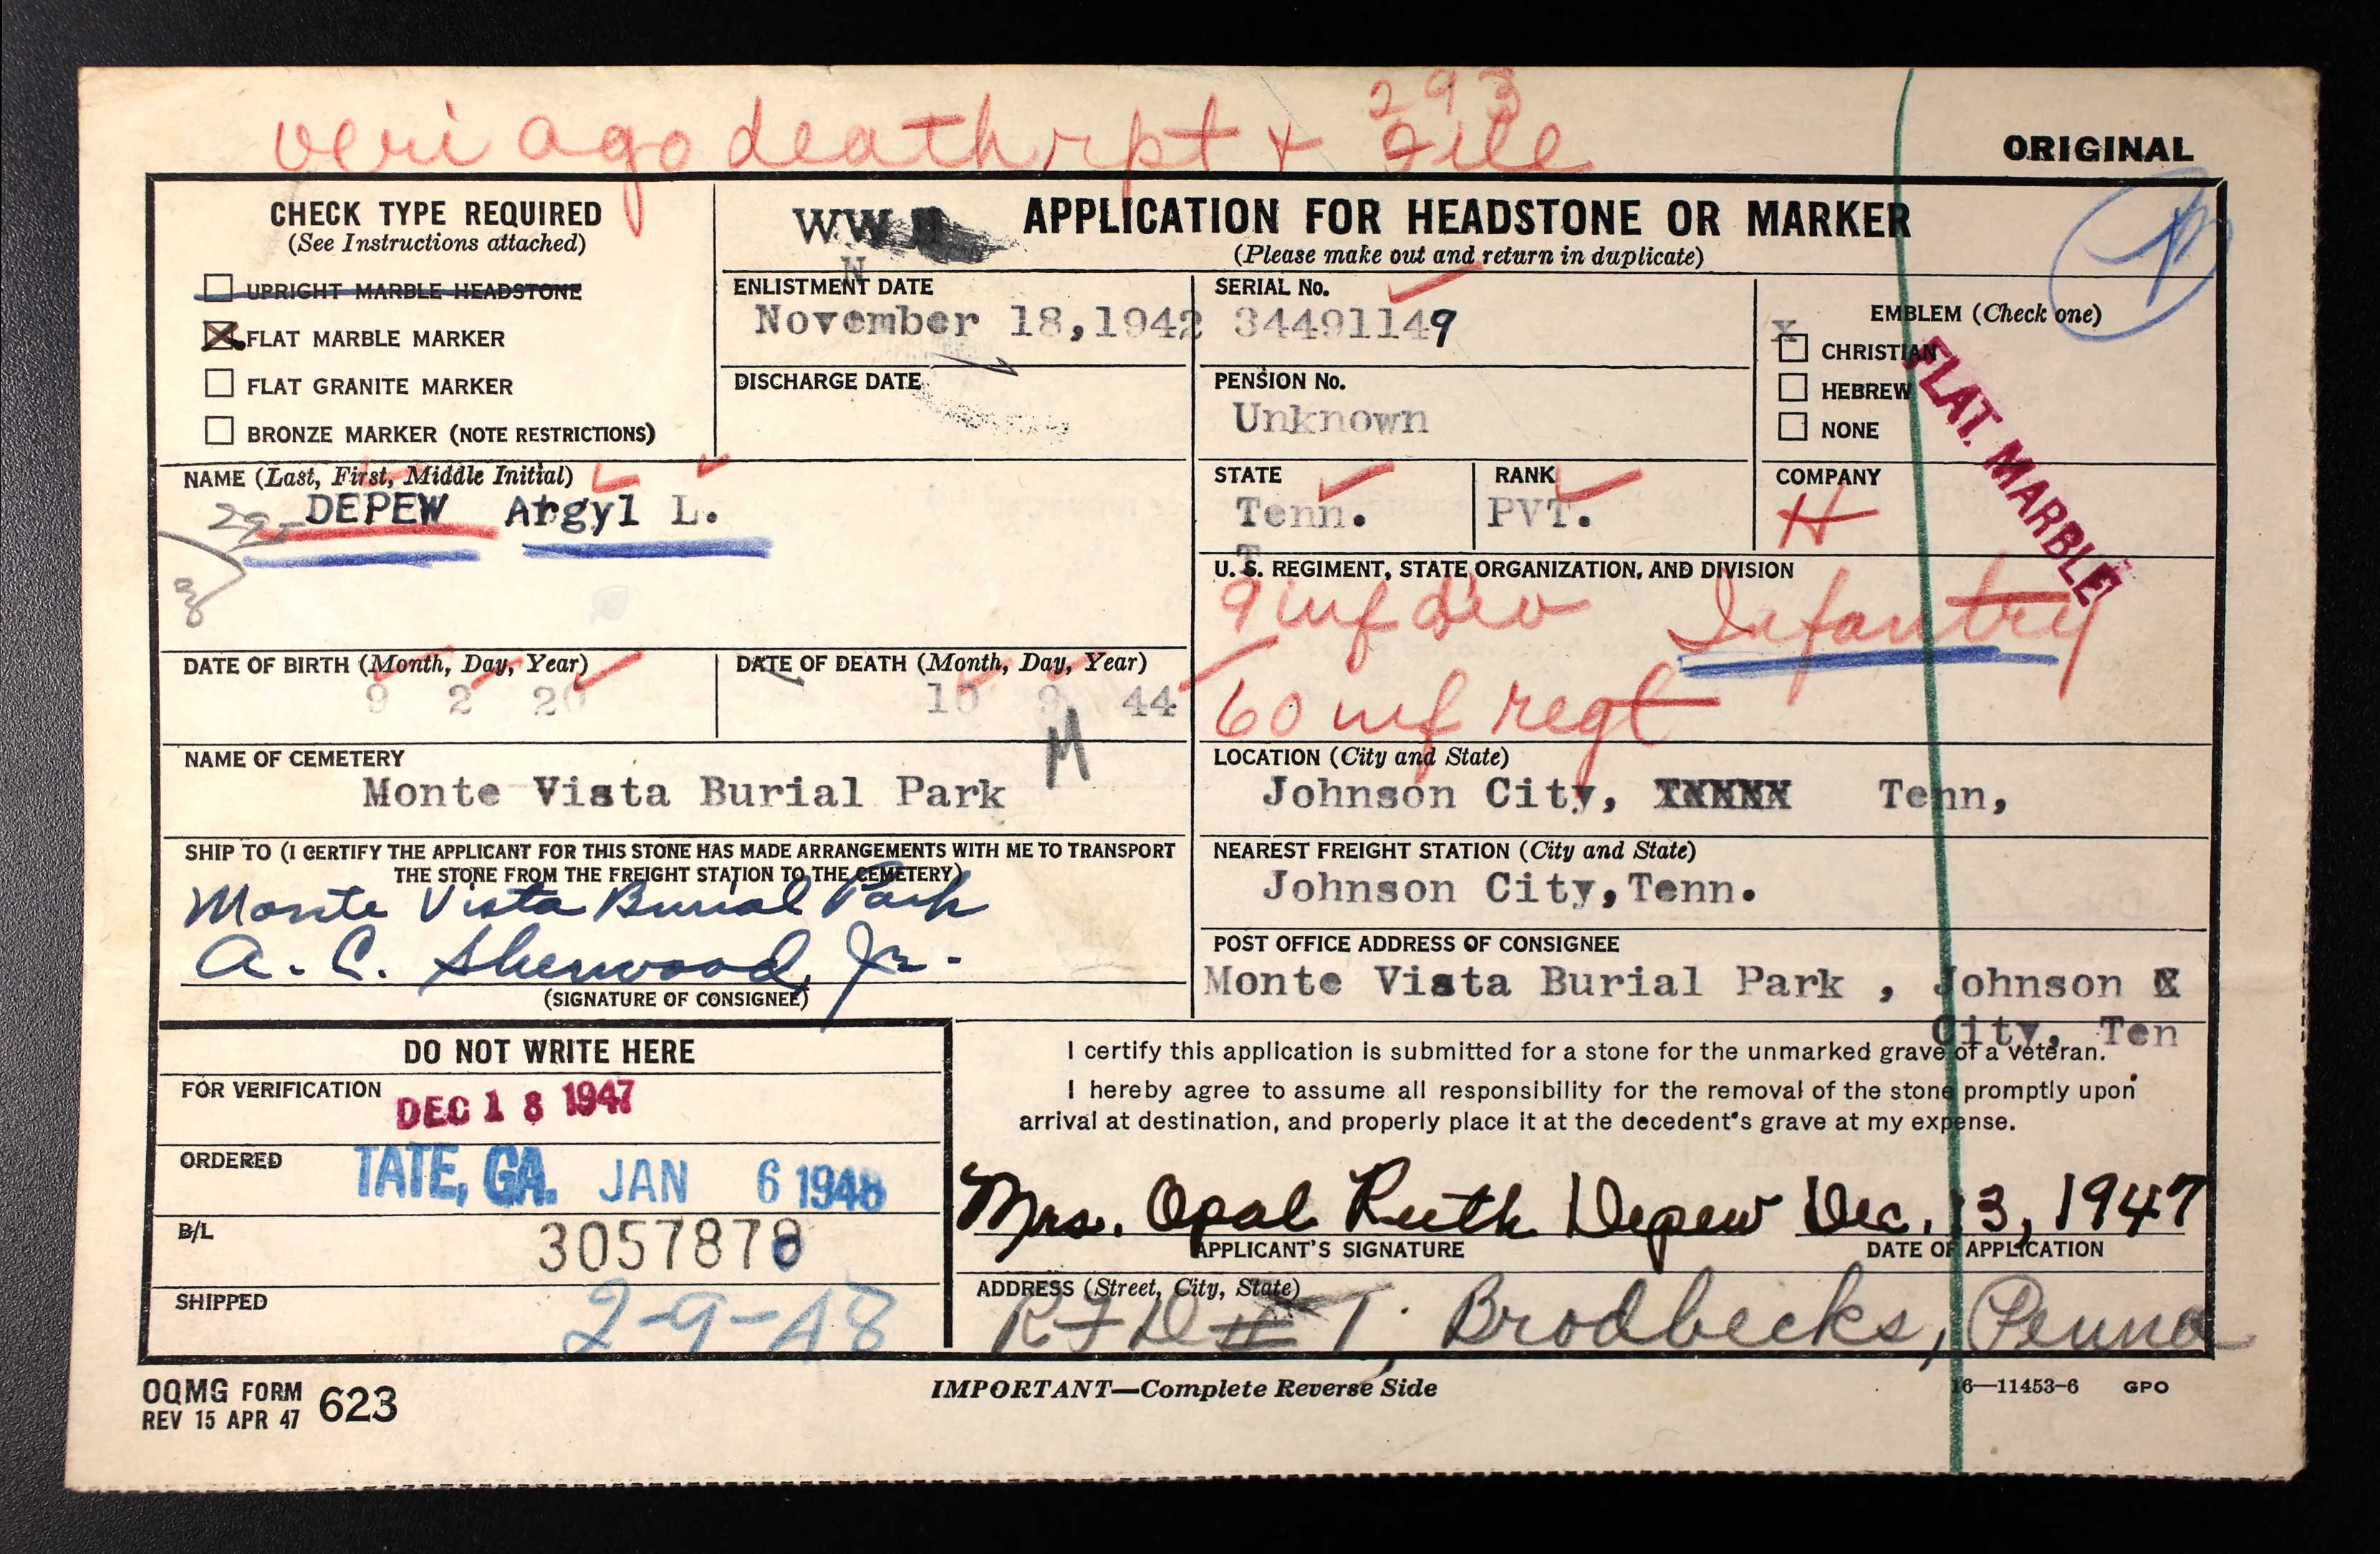 293
veri ago death rpt + File
ORIGINAL
CHECK TYPE REQUIRED
(See Instructions attached)
UPRIGHT MARBLE HEADSTONE
FLAT MARBLE MARKER
FLAT GRANITE MARKER
BRONZE MARKER (NOTE RESTRICTIONS)
WW II
APPLICATION FOR HEADSTONE OR MARKER
(Please make out and return in duplicate)
ENLISTMENT DATE
November 18,1942
SERIAL No.
34491149
EMBLEM (Check one)
X
CHRISTIAN
HEBREW
NONE
FLAT. MARBLE
DISCHARGE DATE
PENSION No.
Unknown
NAME (Last, First, Middle Initial)
DEPEW Argyl L.
STATE
Tenn.
RANK
PVT.
COMPANY
H
U. S. REGIMENT, STATE ORGANIZATION, AND DIVISION
9 inf div Infantry
60 inf regt
DATE OF BIRTH (Month, Day, Year)
9 2 20
DATE OF DEATH (Month, Day, Year)
10 9 44
M
NAME OF CEMETERY
Monte Vista Burial Park
LOCATION (City and State)
Johnson City, Tenn,
SHIP TO (I CERTIFY THE APPLICANT FOR THIS STONE HAS MADE ARRANGEMENTS WITH ME TO TRANSPORT
THE STONE FROM THE FREIGHT STATION TO THE CEMETERY)
Monte Vista Burial Park
A. C. Sherwood, Jr.
(SIGNATURE OF CONSIGNEE)
NEAREST FREIGHT STATION (City and State)
Johnson City,Tenn.
POST OFFICE ADDRESS OF CONSIGNEE
Monte Vista Burial Park , Johnson
City, Ten
DO NOT WRITE HERE
FOR VERIFICATION
DEC 18 1947
ORDERED
TATE, GA. JAN 6 1948
B/L
3057878
SHIPPED
2-9-48
I certify this application is submitted for a stone for the unmarked grave of a veteran.
I hereby agree to assume all responsibility for the removal of the stone promptly upon
arrival at destination, and properly place it at the decedent's grave at my expense.
Mrs. Opal Ruth Depew Dec. 13, 1947
APPLICANT'S SIGNATURE
DATE OF APPLICATION
ADDRESS (Street, City, State)
RFD # 1, Brodbecks, Penna
OQMG FORM 623
REV 15 APR 47
IMPORTANT—Complete Reverse Side
16—11453-6 GPO